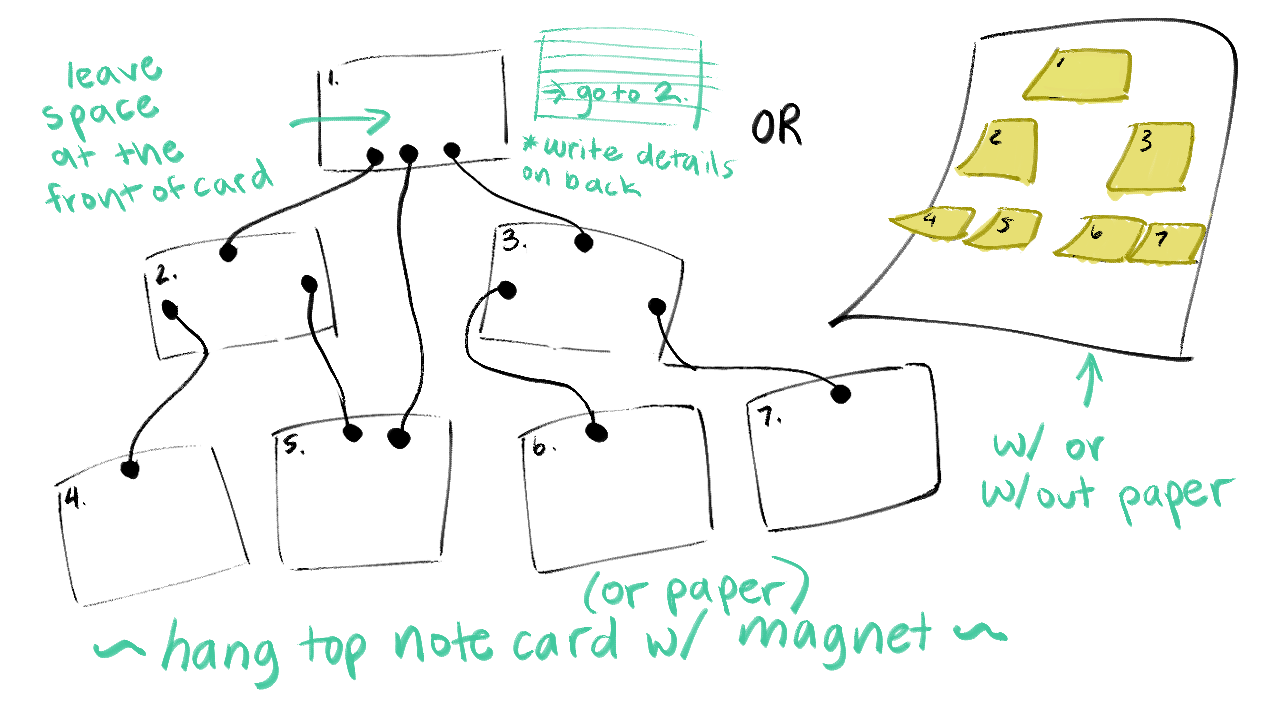 leave
space
at the
front of card
1.
→ go to 2.
*write details
on back
2.
3.
4.
5.
6.
7.
OR
1
2
3
4
5
6
7
w/ or
w/out paper
(or paper)
~ hang top note card w/ magnet ~